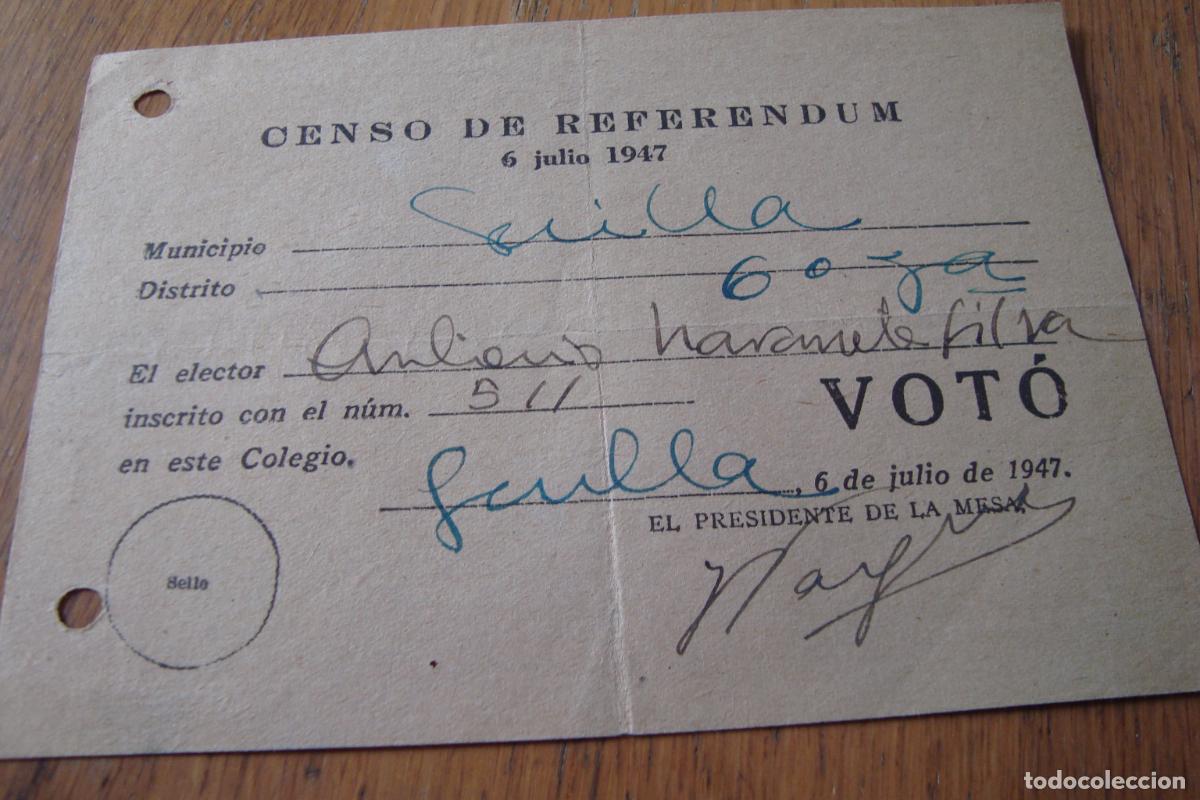 CENSO DE REFERENDUM
6 julio 1947
Municipio Sevilla
Distrito 6º
El elector Antonio Silva
inscrito con el núm. 511 VOTÓ
en este Colegio.
Sevilla, 6 de julio de 1947.
EL PRESIDENTE DE LA MESA,
Sello
todocoleccion